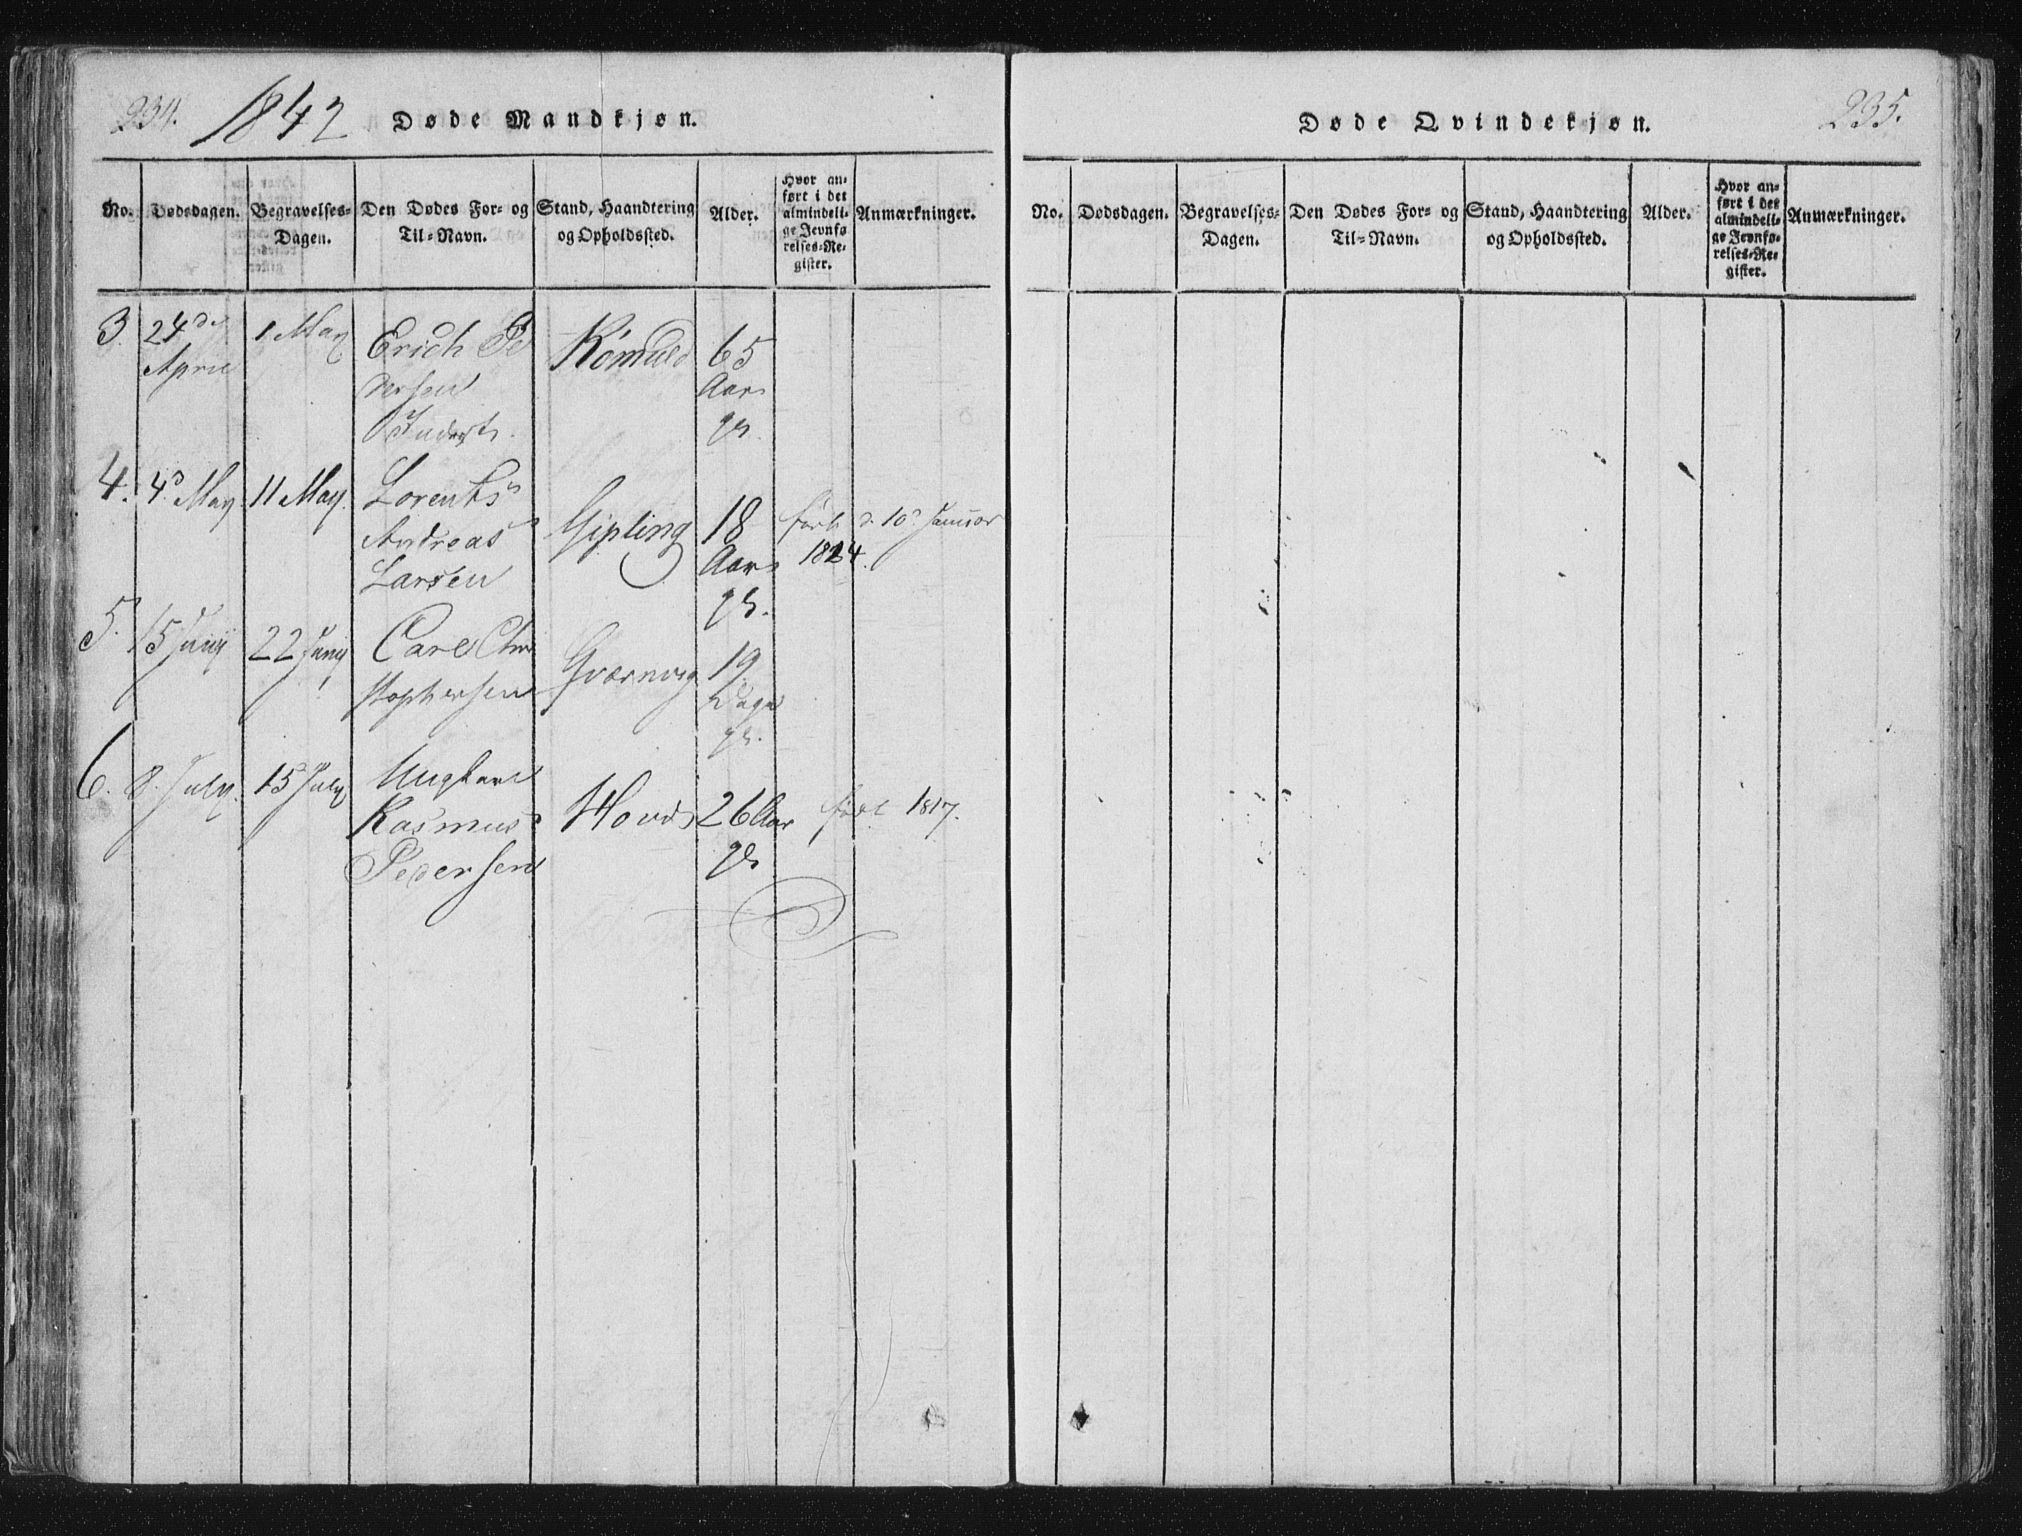 234. 1842 Døde Mandkjøn.
No. Dødsdagen. Begravelses-Dagen. Den Dødes For- og Til-Navn. Stand, Haandtering og Opholdssted. Alder. Hvor anført i det almindelige Jevnførelses-Register. Anmærkninger.
3. 24de 1 May Erich Pe Kömuld 65
April dersen Aar
4. 4d May 11 May Lorents
Andreas Gipling 18 født d. 10d Januar
Larsen Aar 1824.
5. 15 Junij 22 Junij Carl Chri
stophersen Qværnvig 19
Dage
6. 8. July. 15 July Ungkarl
Rasmus Hovd 26 Aar født 1817.
Pedersen
Døde Qvindekjøn. 235.
No. Dødsdagen. Begravelses-Dagen. Den Dødes For- og Til-Navn. Stand, Haandtering og Opholdssted. Alder. Hvor anført i det almindelige Jevnførelses-Register. Anmærkninger.